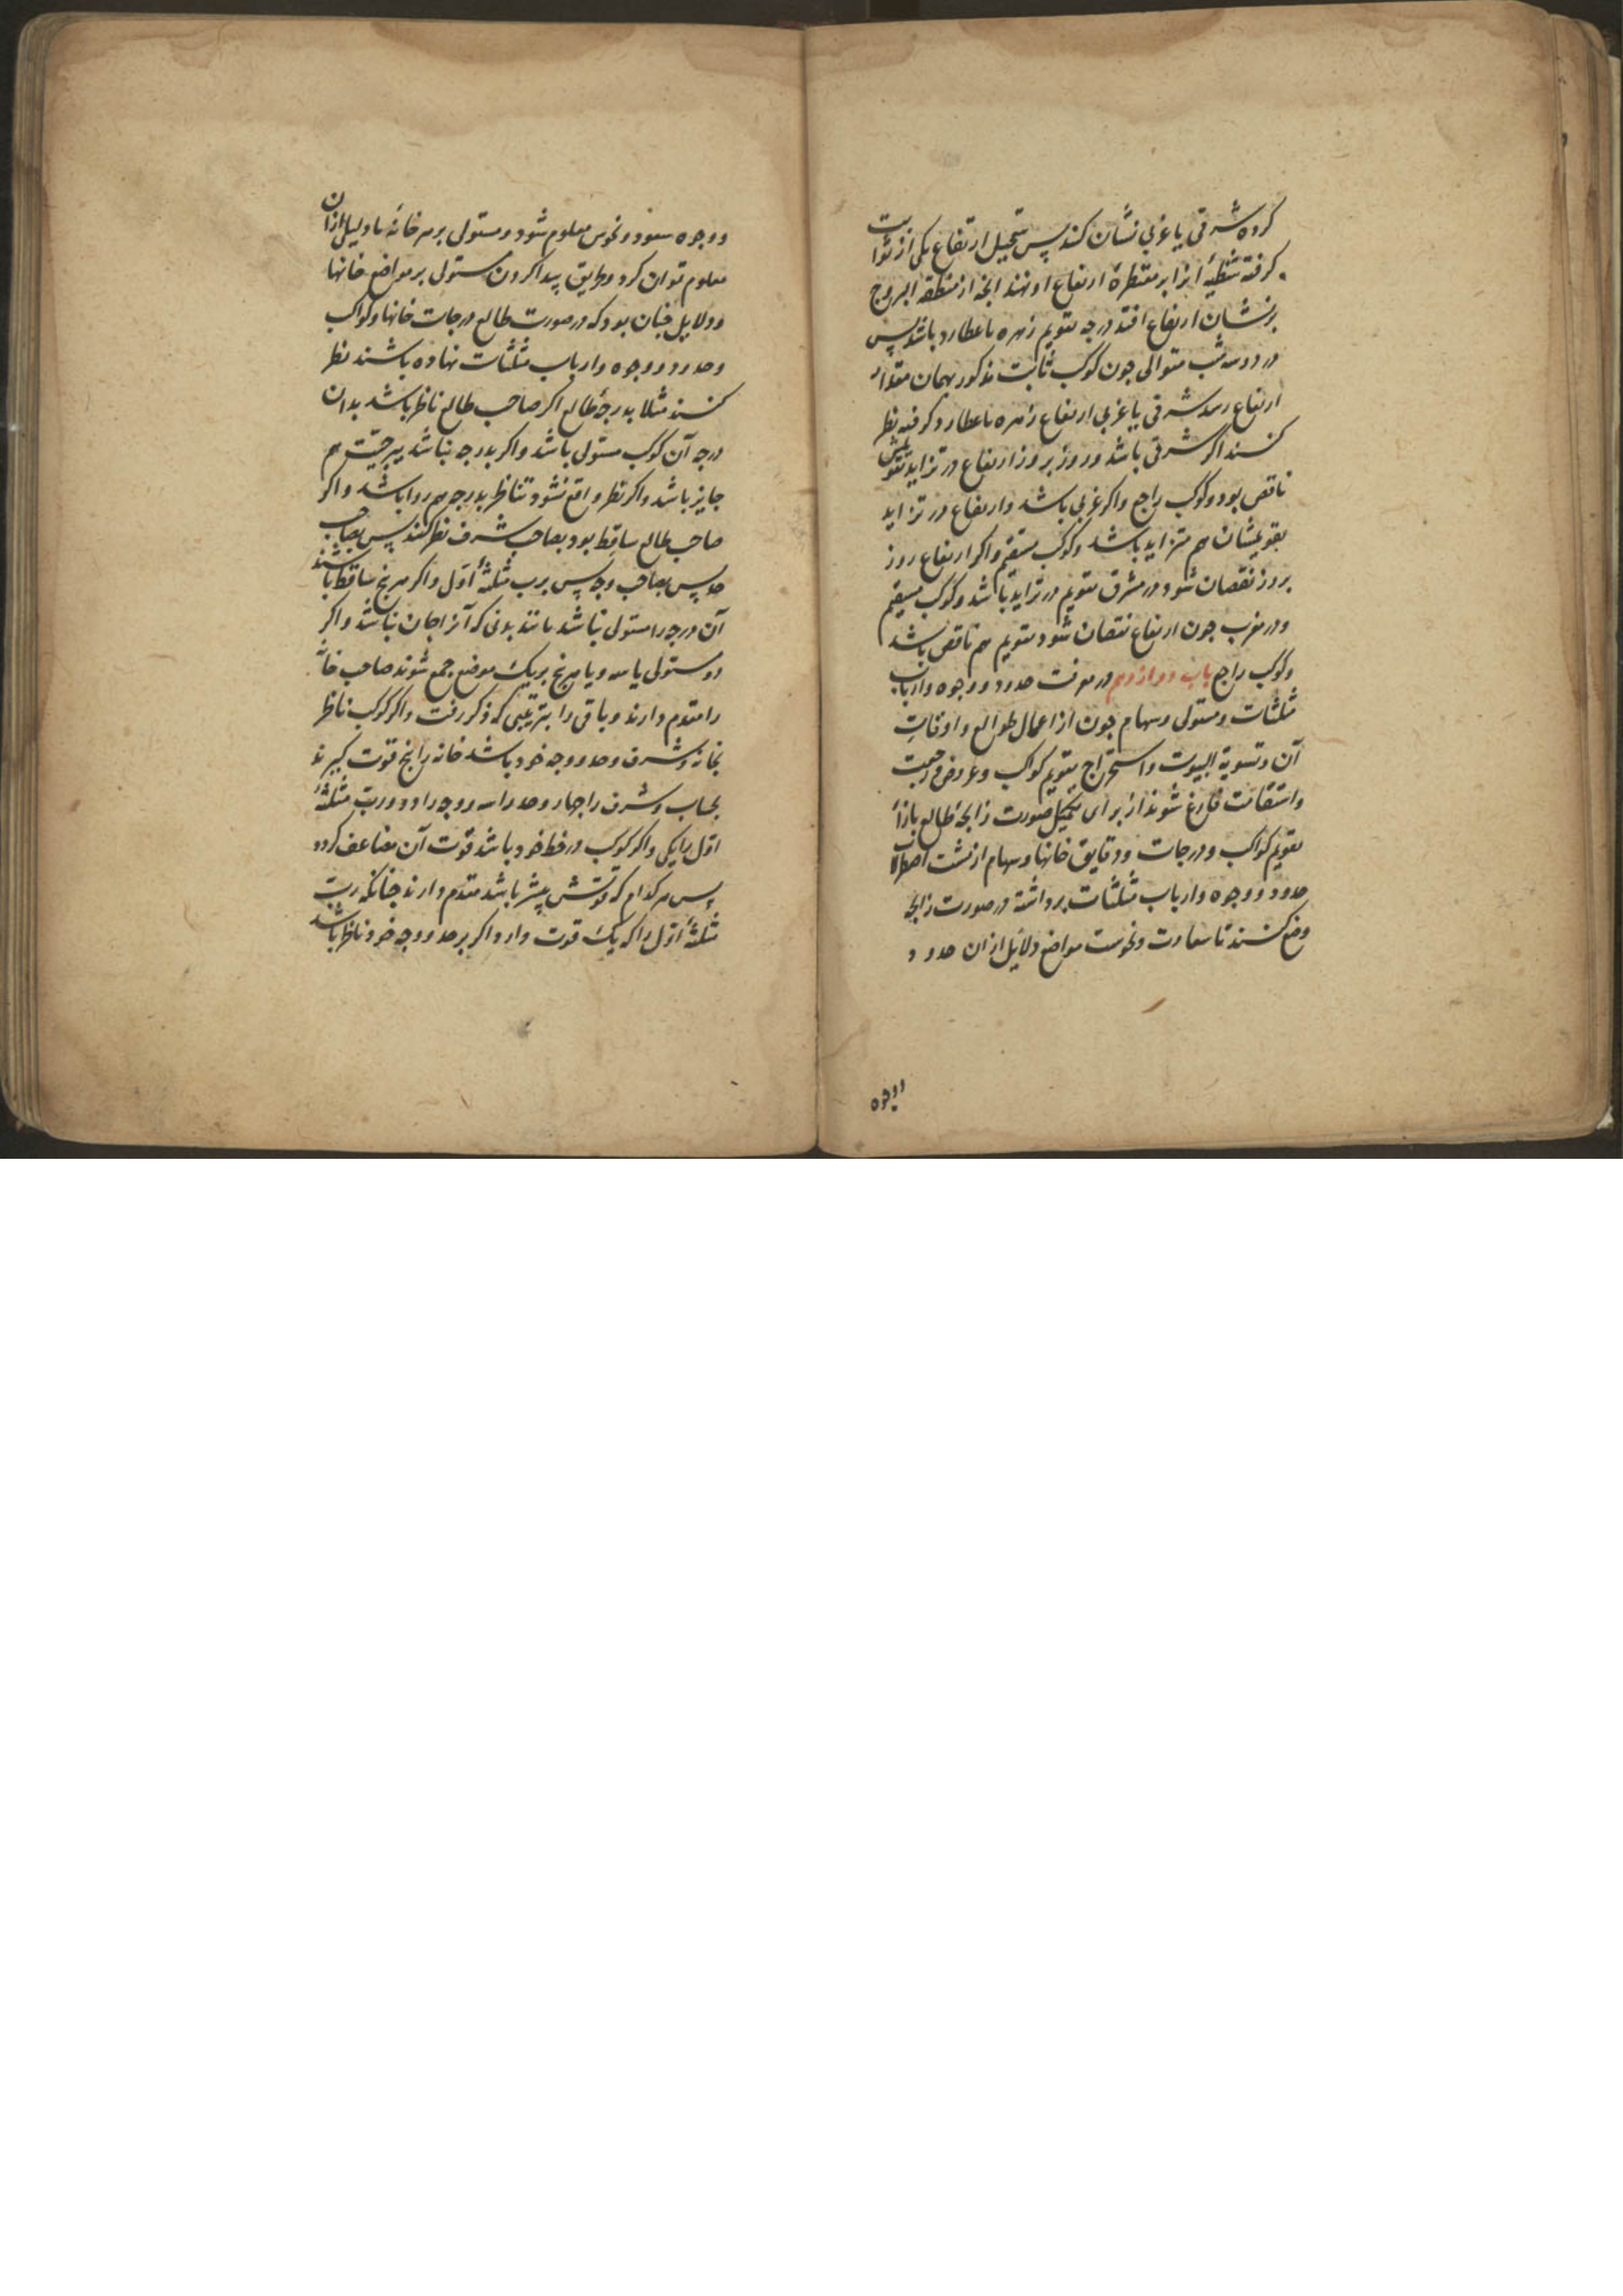 کرده شرقی یا غربی نشان کنند پس بتعجیل ارتفاع یکی از ثوابت
گرفته شظیهٔ او را بر مقنطرهٔ ارتفاع او نهند انجه از منطقة البروج
بر نشان ارتفاع افتد درجه تقویم زهره یا عطارد باشد پس
در دو سه شب متوالی جون کوکب ثابت مذکور بهمان مقدار
ارتفاع رسد شرقی یا غربی ارتفاع زهره یا عطارد گرفته نظر
کنند اکر شرقی باشد و روز بروز ارتفاع در تزاید تقویمش
ناقص بود و کوکب راجع واکر غربی باشد و ارتفاع در تزاید
تقویمشان هم متزاید باشد و کوکب مستقیم و اکر ارتفاع روز
بروز نقصان شود در مشرق تقویم در تزاید باشد و کوکب مستقیم
و در مغرب جون ارتفاع نقصان شود تقویم هم ناقص باشد
وکوکب راجع باب دوازدهم در معرفت حدود و وجوه و ارباب
مثلثات و مستولی و سهام جون از اعمال طوالع و اوقات
آن و تسویة البیوت و استخراج تقویم کواکب و عروض و رجعت
و استقامت فارغ شوند از برای تکمیل صورت زایجهٔ طالع بازاء
تقویم کواکب و درجات و دقایق خانها و سهام از پشت اصطرلاب
حدود و وجوه و ارباب مثلثات برداشته در صورت زایجه
وضع کنند تا سعادت و نحوست مواضع دلایل از ان حدود
ووجوه
و وجوه سعود و نحوس معلوم شود و مستولی بر هر خانهٔ یا دلیلی از ان
معلوم توان کرد و طریق پیدا کردن مستولی بر مواضع خانها
و دلایل جنان بود که در صورت طالع درجات خانها و کواکب
و حدود و وجوه و ارباب مثلثات نهاده باشند نظر
کنند مثلا بدرجهٔ طالع اکر صاحب طالع ناظر باشد بدان
درجه آن کوکب مستولی باشد و اکر بدرجه نباشد ببرجیت هم
جایز باشد و اکر نظر واقع نشود تناظر بدرجه هم روا باشد و اکر
صاحب طالع ساقط بود بصاحب شرف نظر کنند پس بصاحب
حد پس بصاحب وجه پس برب مثلثهٔ اول و اکر هر پنج ساقط باشند
آن درجه را مستولی نباشد مانند بدنی که آنرا جان نباشد و اکر
دو مستولی یا سه و یا هر پنج بر یک موضع جمع شوند صاحب خانه
را مقدم دارند و باقی را بترتیبی که ذکر رفت و اکر کوکب ناظر
بخانه و شرف و حد و وجه خود باشد خانه را پنج قوت کیرند
بحساب و شرف را جهار و حد را سه و وجه را دو و رب مثلثهٔ
اول را یکی و اکر کوکب در حظ خود باشد قوت آن مضاعف کردد
پس هر کدام که قوتش بیشتر باشد مقدم دارند جنانکه رب
مثلثهٔ اول را که یک قوت دارد اکر بر حد و وجه خود ناظر باشد